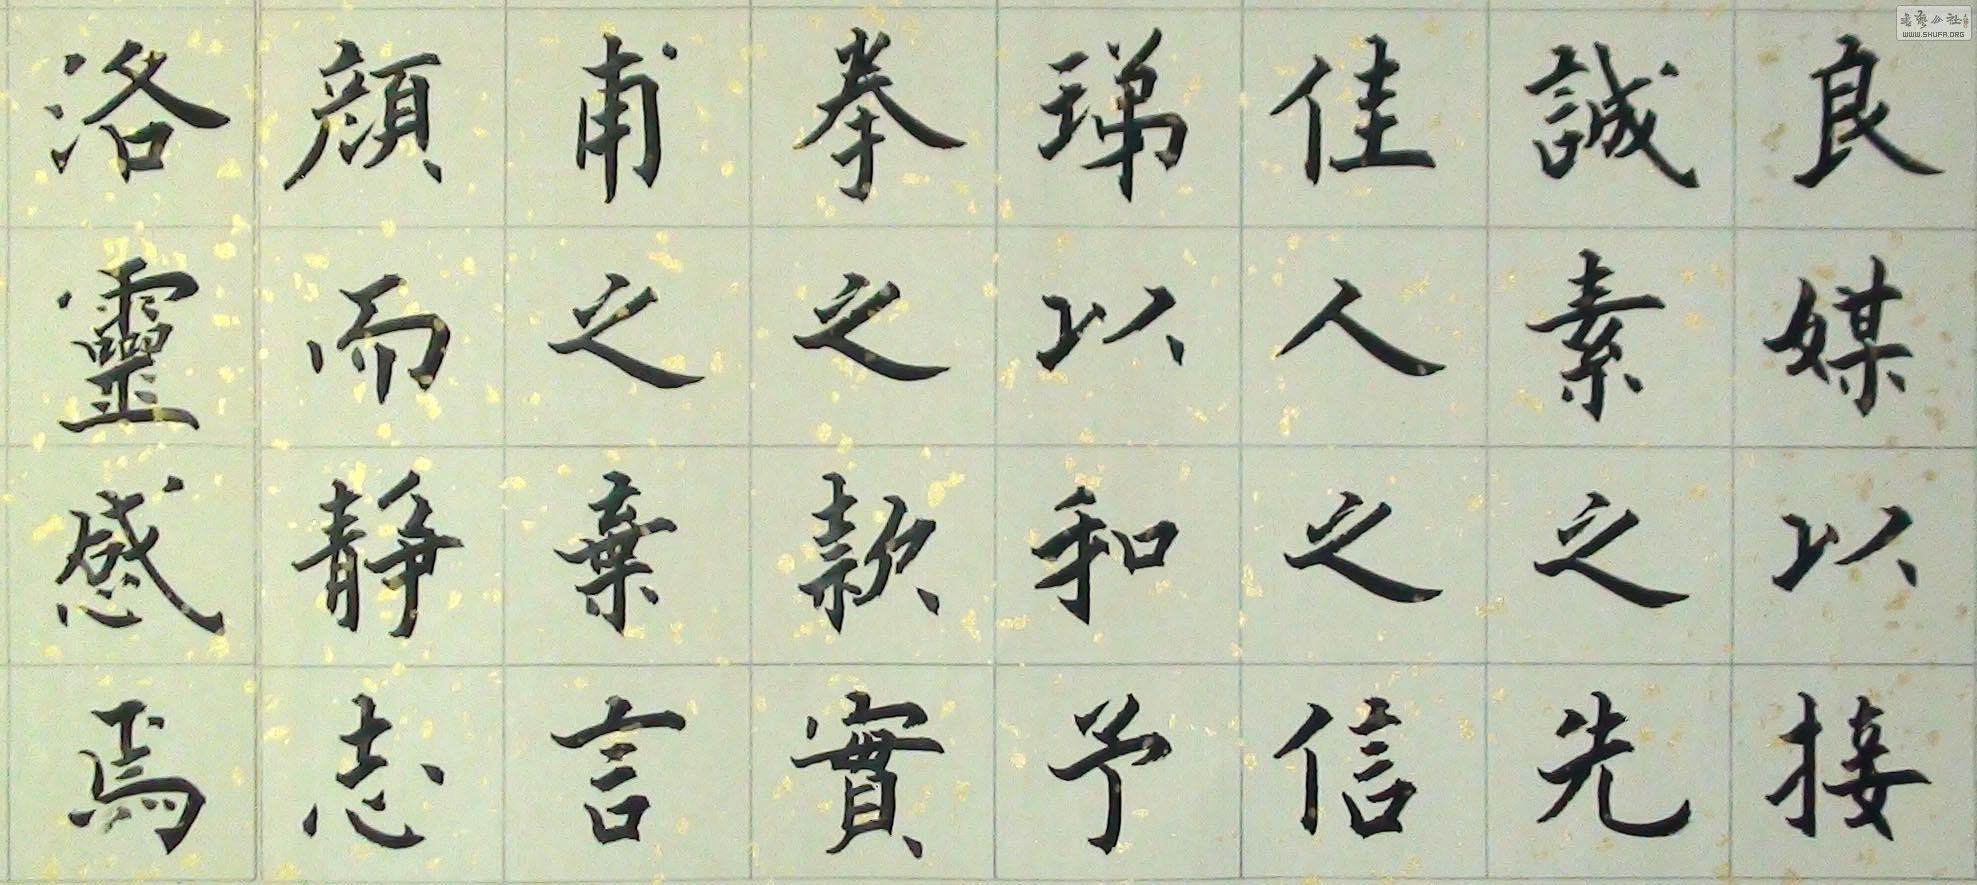 良媒以接
誠素之先
佳人之信
珶以和予
拳之款實
甫之棄言
顏而靜志
洛靈感焉
书艺公社
WWW.SHUFA.ORG